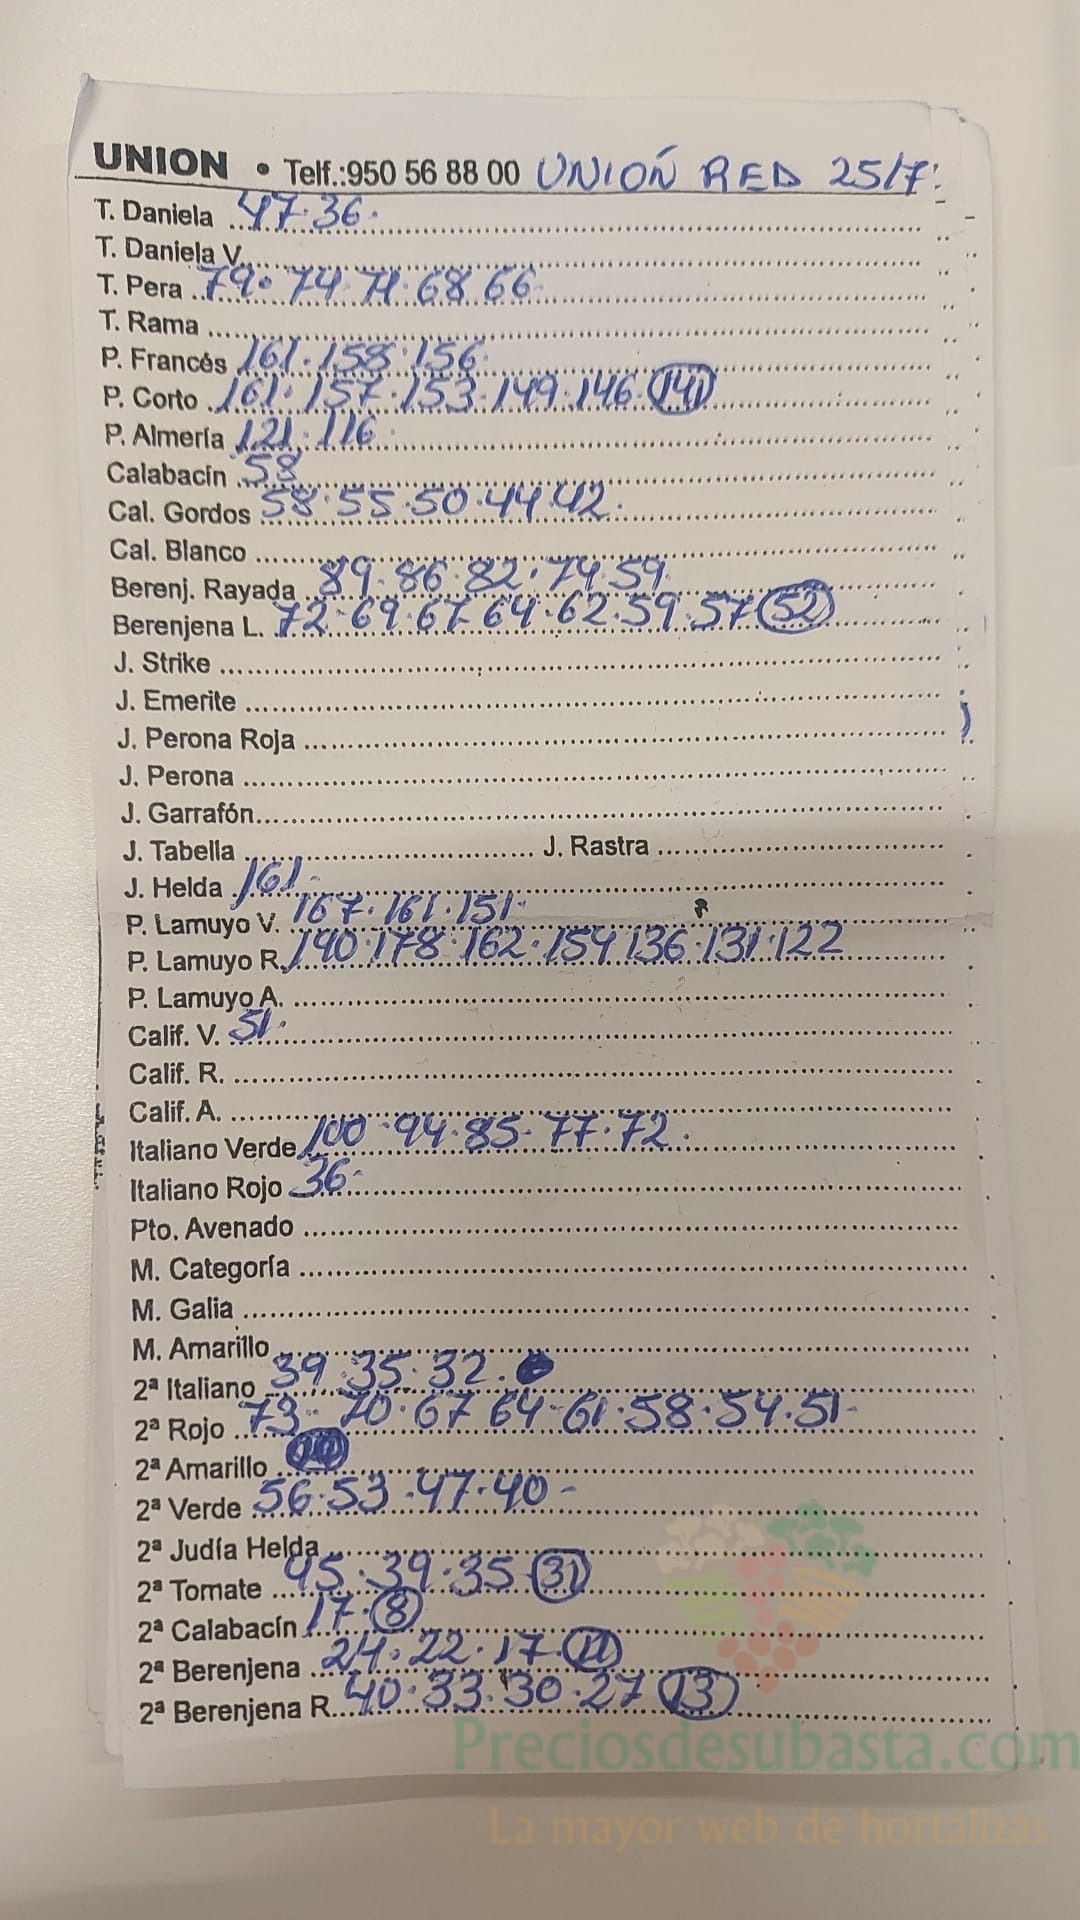 UNION • Telf.:950 56 88 00 UNIOÑ RED 25/7
T. Daniela 47.36.
T. Daniela V.
T. Pera 79. 74 71. 68 66
T. Rama
P. Francés 161. 158. 156
P. Corto 161. 157. 153. 149. 146. 141
P. Almería 121. 116
Calabacín 58
Cal. Gordos 58. 55. 50. 44. 42.
Cal. Blanco
Berenj. Rayada 89. 86. 82. 74. 59
Berenjena L. 72. 69. 67. 64. 62. 59. 57 52
J. Strike
J. Emerite
J. Perona Roja
J. Perona
J. Garrafón
J. Tabella J. Rastra
J. Helda 161-
P. Lamuyo V. 167. 161. 151-
P. Lamuyo R. 190. 178. 162. 154 136. 131. 122
P. Lamuyo A.
Calif. V. 51.
Calif. R.
Calif. A.
Italiano Verde 100. 94. 85. 77. 72.
Italiano Rojo 36-
Pto. Avenado
M. Categoría
M. Galia
M. Amarillo
2ª Italiano 39. 35. 32.
2ª Rojo 73- 70. 67 64- 61. 58. 54. 51-
2ª Amarillo
2ª Verde 56. 53. 47. 40 -
2ª Judía Helda
2ª Tomate 45. 39. 35 31
2ª Calabacín 17. 8
2ª Berenjena 24. 22. 17. 11
2ª Berenjena R. 40. 33. 30. 27 13
Preciosdesubasta.com
La mayor web de hortalizas